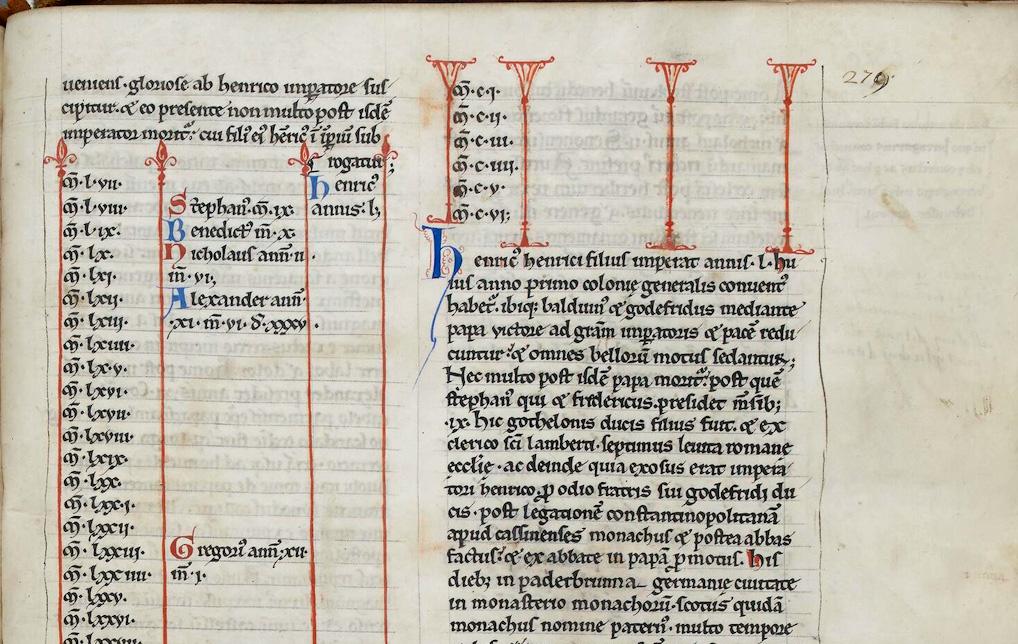 ueniens· gloriose ab henrico imꝑatore sus
cipitur· ⁊ eo presente non multo post isdē
imperator morit᷑· cui fili᷒ ei᷒ henric᷒ ī īpiū sub
rogatur;
ꝯ·l·vii·
henric᷒
ꝯ·l·viii· Stephan᷒· m̄·ix·
annis· l;
ꝯ·l·ix· Benedict᷒ m̄·x·
ꝯ·lx· Nicholaus ann̄·ii·
ꝯ·lxi· m̄·vi;
ꝯ·lxii· Alexander ann̄
ꝯ·lxiii· ·xi· m̄·vi· d·xxxv·
ꝯ·lxiiii·
ꝯ·lx·v·
ꝯ·lxvi·
ꝯ·lxvii·
ꝯ·lxviii·
ꝯ·lxix·
ꝯ·lxx·
ꝯ·lxx·i·
ꝯ·lxxii·
ꝯ·lxxiii· Gregori᷒ ann̄·xii·
ꝯ·lxxiiii· m̄·i·
ꝯ·lxxv·
ꝯ·lxxvi·
276·
ꝯ·c·i·
ꝯ·c·ii·
ꝯ·c·iii·
ꝯ·c·iiii·
ꝯ·c·v·
ꝯ·c·vi;
Henric᷒ henrici filius imperat annis· l· hu
ius anno primo colonie generalis conuent᷒
habet᷑· ibiq; balduin᷒ ⁊ godefridus mediante
papa victore ad gr̄am imꝑatoris ⁊ pacē redu
cuntur· ⁊ omnes bellorū motus sedantur;
Nec multo post isdē papa morit᷑· post quē
stephan᷒ qui ⁊ fredericus· presidet m̄sib;
·ix· hic gothelonis ducis filius fuit· ⁊ ex
clerico sc̄i lamberti· septimus leuita romane
eccl̄ie· ac deinde quia exosus erat impera
tori henrico, ꝓ odio fratris sui godefridi du
cis· post legationē constantinopolitanā
apud cassinenses monachus ⁊ postea abbas
factus· ⁊ ex abbate in papā ꝓmotus. his
dieb; in paderbrunna germanie ciuitate
in monasterio monachorū· scotus quidā
monachus nomine patern᷒· multo tempore